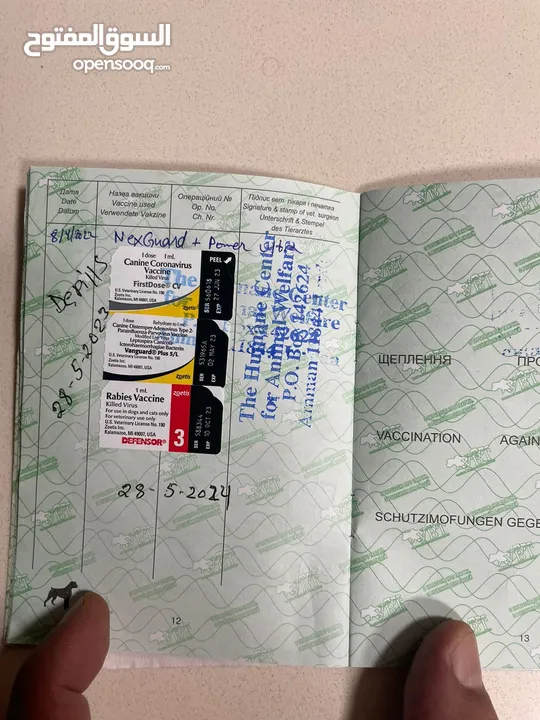 السوق المفتوح
opensooq.com
Дата
Date
Datum
Назва вакцини
Vaccine used
Verwendete Vakzine
Операційний №
Op. No.
Ch. Nr.
Підпис вет. лікаря і печатка
Signature & stamp of vet. surgeon
Unterschrift & Stempel
des Tierarztes
NexGuard + Power
28.5.2023
1 dose 1 mL
Canine Coronavirus
Vaccine
Killed Virus
FirstDose® CV
U.S. Veterinary License No. 190
Zoetis Inc.
Kalamazoo, MI 49007, USA
PEEL
SER
EXP 27 JUN 23
1 dose Rehydrate to 1 mL
Canine Distemper-Adenovirus Type 2-
Parainfluenza-Parvovirus Vaccine
Modified Live Virus
Leptospira Canicola-
Icterohaemorrhagiae Bacterin
Vanguard® Plus 5/L
U.S. Veterinary License No. 190
Zoetis Inc.
Kalamazoo, MI 49007, USA
zoetis
SER 531965A
EXP 02 MAY 23
1 mL
Rabies Vaccine
Killed Virus
For use in dogs and cats only
For veterinary use only
U.S. Veterinary License No. 190
Zoetis Inc.
Kalamazoo, MI 49007, USA
DEFENSOR® 3
zoetis
SER 588344
EXP 10 OCT 23
The Humane Center
for Animal Welfare
P.O. Box 142624
Amman
28-5-2024
12
ЩЕПЛЕННЯ
ПРО
VACCINATION
AGAIN
SCHUTZIMOFUNGEN GEGE
13